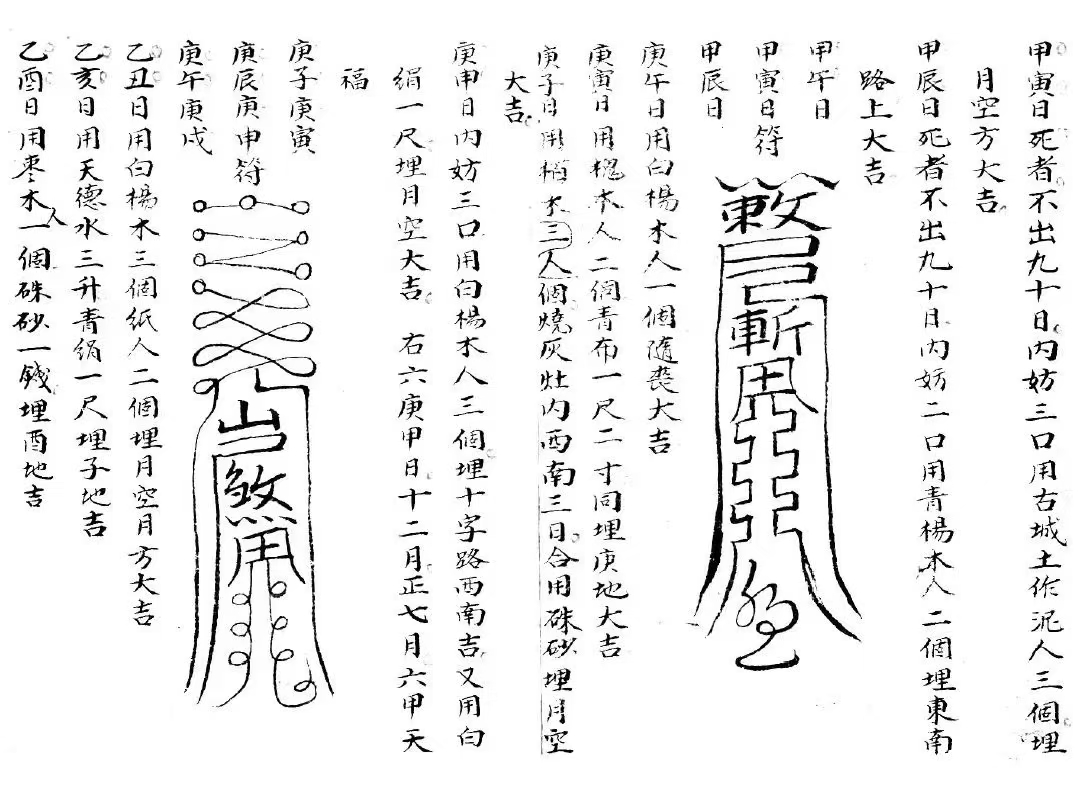 甲寅日死者不出九十日内妨三口用古城土作泥人三個埋
月空方大吉
甲辰日死者不出九十日内妨二口用青楊木人二個埋東南
路上大吉
甲午日
甲寅日符
甲辰日
斬
庚午日用白楊木人一個隨喪大吉
庚寅日用槐木人二個青布一尺二寸同埋庚地大吉
庚子日用柏木三人個燒灰灶内西南三日合用硃砂埋月空
大吉
庚申日内妨三口用白楊木人三個埋十字路西南吉又用白
絹一尺埋月空大吉 右六庚甲日十二月正七月六甲天
福
庚子庚寅
庚辰庚申符
庚午庚戌
山
煞
乙丑日用白楊木三個紙人二個埋月空月方大吉
乙亥日用天德水三升青絹一尺埋子地吉
乙酉日用棗木人一個硃砂一錢埋酉地吉